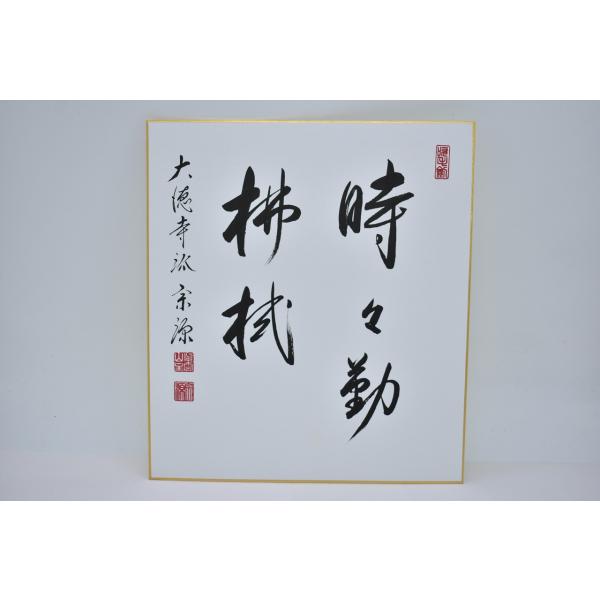 時々勤
拂拭
大徳寺派宗源